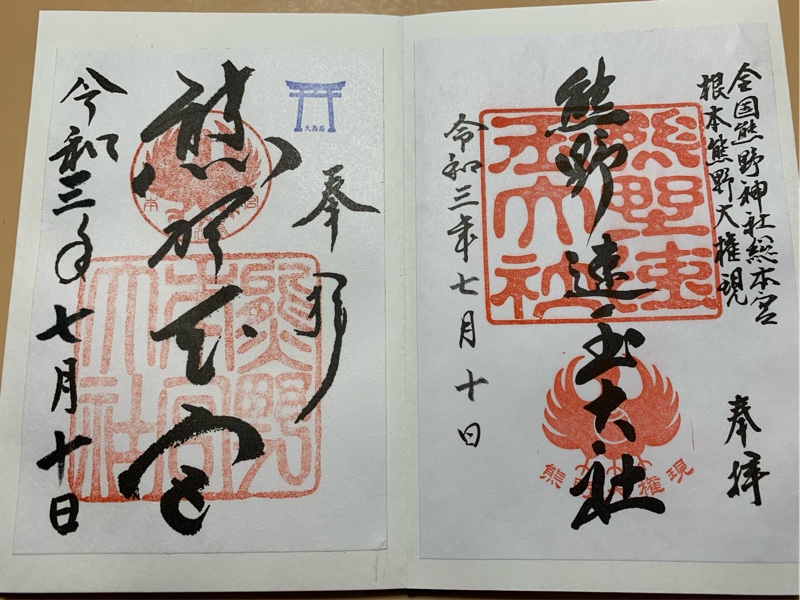 全国熊野神社総本宮
根本熊野大権現
奉拝
熊野速玉大社
熊野速
玉大社
熊野権現
令和三年七月十日
大鳥居
奉拝
熊野本宮
熊野
本宮
大社
令和三年七月十日